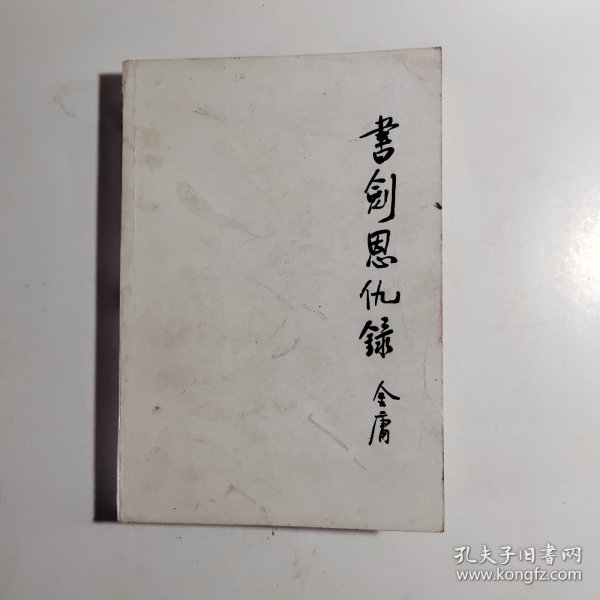 書劍恩仇錄
金庸
孔夫子旧書网
www.kongfz.com